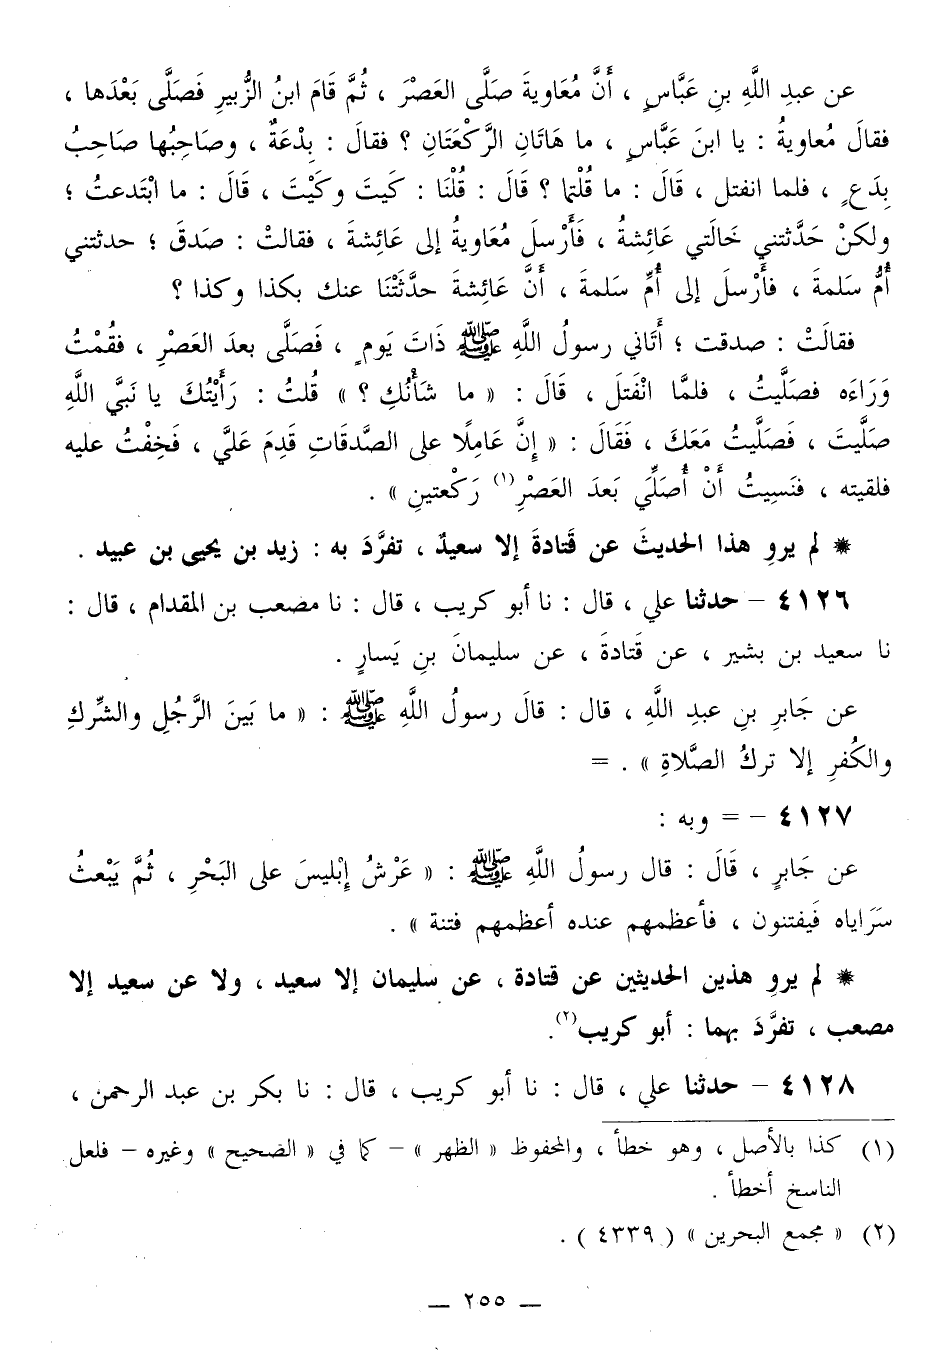 عن عبدِ اللَّهِ بنِ عَبَّاسٍ ، أَنَّ مُعَاويةَ صَلَّى العَصْرَ ، ثُمَّ قَامَ ابنُ الزُّبيرِ فَصَلَّى بَعْدَها ،
فقالَ مُعاويةُ : يا ابنَ عَبَّاسٍ ، ما هَاتَانِ الرَّكْعَتَانِ ؟ فقالَ : بِدْعَةٌ ، وصَاحِبُها صَاحِبُ
بِدَعٍ ، فلما انفتل ، قَالَ : ما قُلْتما ؟ قَالَ : قُلْنَا : كَيتَ وكَيْتَ ، قَالَ : ما ابْتَدعتُ ؛
ولكنْ حَدَّثتني خَالَتي عَائِشةُ ، فَأَرْسلَ مُعَاويةُ إلى عَائِشةَ ، فقالتْ : صَدقَ ؛ حدثتني
أُمُّ سَلمةَ ، فأَرْسلَ إلى أُمِّ سَلمةَ ، أَنَّ عَائِشةَ حدَّثَتْنَا عنك بكذا وكذا ؟
فقالَتْ : صدقت ؛ أَتَاني رسولُ اللَّهِ ﷺ ذَاتَ يَومٍ ، فَصَلَّى بعدَ العَصْرِ ، فقُمْتُ
وَرَاءَه فصَلَّيتُ ، فلمَّا انْفَتلَ ، قَالَ : « ما شَأْنُكِ ؟ » قُلتُ : رَأَيْتُكَ يا نَبيَّ اللَّهِ
صلَّيتَ ، فَصَلَّيتُ مَعَكَ ، فَقَالَ : « إِنَّ عَامِلًا على الصَّدقَاتِ قَدِمَ عَليَّ ، فَخِفْتُ عليه
فلقيته ، فنَسِيتُ أَنْ أُصَلِّيَ بَعدَ العَصْرِ(١) رَكْعتينِ » .
* لم يروِ هذا الحديثَ عن قَتادةَ إلا سعيدٌ ، تفرَّدَ به : زيد بن يحيى بن عبيد .
٤١٢٦ – حدثنا علي ، قال : نا أبو كريب ، قال : نا مصعب بن المقدام ، قال :
نا سعيد بن بشير ، عن قَتادةَ ، عن سليمانَ بنِ يَسارٍ .
عن جَابرِ بنِ عبدِ اللَّهِ ، قال : قالَ رسولُ اللَّهِ ﷺ : « ما بَينَ الرَّجُلِ والشِّركِ
والكُفرِ إلا تركُ الصَّلاةِ » . =
٤١٢٧ – = وبه :
عن جَابرٍ ، قَالَ : قال رسولُ اللَّهِ ﷺ : « عَرْشُ إِبْليسَ على البَحْرِ ، ثُمَّ يَبْعثُ
سَرَاياه فَيفتنون ، فأعظمهم عنده أعظمهم فتنة » .
* لم يروِ هذين الحديثين عن قتادة ، عن سليمان إلا سعيد ، ولا عن سعيد إلا
مصعب ، تفرَّدَ بهما : أبو كريب(٢).
٤١٢٨ – حدثنا علي ، قال : نا أبو كريب ، قال : نا بكر بن عبد الرحمن ،
(١) كذا بالأصل ، وهو خطأ ، والمحفوظ « الظهر » – كما في « الصحيح » وغيره – فلعل
الناسخ أخطأ .
(٢) « مجمع البحرين » ( ٤٣٣٩ ) .
— ٢٥٥ —